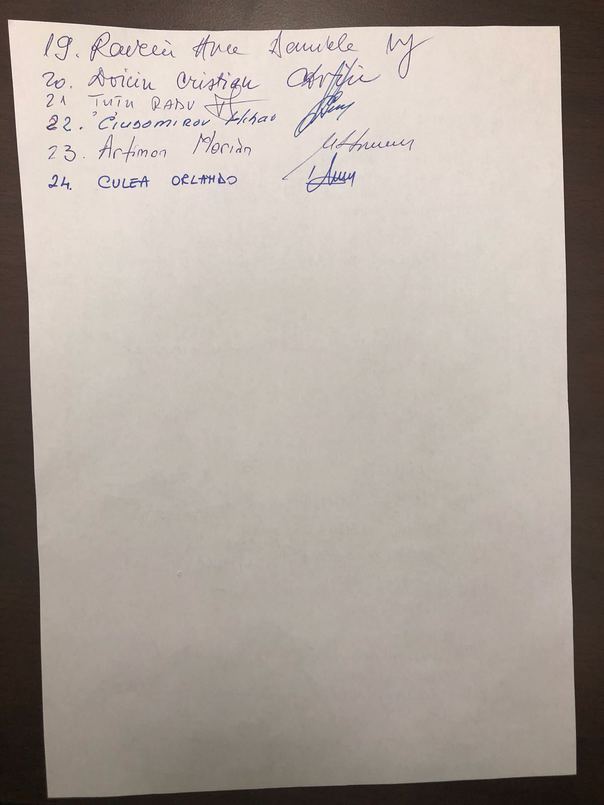 19. Ravein Ana Daniela
20. Doicin Cristian
21 TUTU RADU
22. CIUDOMIROV Mihai
23. Artimon Marian
24. CULEA ORLANDO